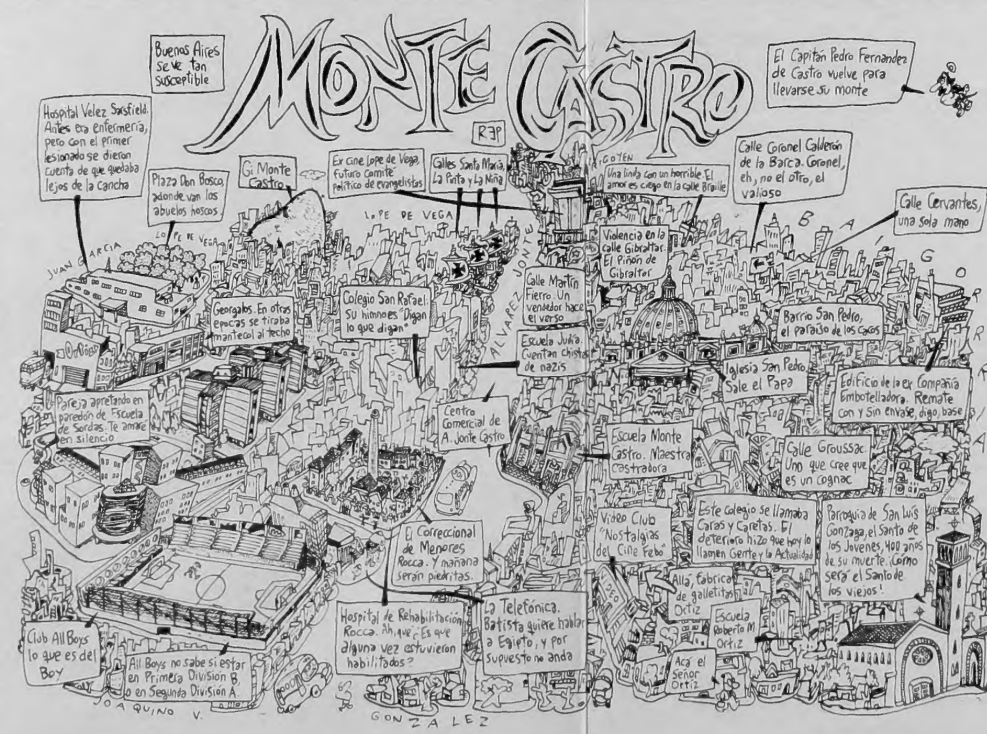 MONTE CASTRO
REP
Buenos Aires
se ve tan
susceptible
El Capitán Pedro Fernandez
de Castro vuelve para
llevarse su monte
Hospital Velez Sarsfield.
Antes era enfermería,
pero con el primer
lesionado se dieron
cuenta de que quedaba
lejos de la cancha
Plaza Don Bosco,
adonde van los
abuelos hoscos
Gi Monte
Castro
Ex cine Lope de Vega,
Futuro comité
político de evangelistas
Calles Santa María,
La Pinta y La Niña
Una linda con un horrible. El
amor es ciego en la calle Braille
Calle Coronel Calderón
de la Barca. Coronel,
eh, no el otro, el
valioso
Calle Cervantes,
una sola mano
JUAN GARCIA
LOPE DE VEGA
LOPE DE VEGA
ALVAREZ JONTE
IRIGOYEN
BAIGORRIA
Violencia en la
calle Gibraltar.
El Piñón de
Gibraltar
Calle Martín
Fierro. Un
vendedor hace
el verso
Georgalos. En otras
épocas se tiraba
mantecol al techo
Colegio San Rafael:
su himno es "Digan
lo que digan"
Escuela Judía.
Cuentan chistes
de nazis
Barrio San Pedro,
el paraíso de los Cacos
Iglesia San Pedro.
Sale el Papa
Edificio de la ex Compañía
Embotelladora. Remate
con y sin envase, digo, base
Pareja apretado en
paredón de Escuela
de Sordas. Te amaré
en silencio
Centro
Comercial de
A. Jonte Castro
Escuela Monte
Castro. Maestra
Castradora
Calle Groussac.
Uno que cree que
es un cognac
El Correccional
de Menores
Rocca. Y mañana
serán piedritas.
Video Club
"Nostalgias
del Cine Febo"
Este colegio se llamaba
Caras y Caretas. El
deterioro hizo que hoy lo
llamen Gente y la Actualidad
Parroquia de San Luis
Gonzaga, el Santo de
los Jovenes, 400 años
de su muerte. ¡Cómo
será el Santo de
los viejos!
Allá, fabrica
de galletitas
Ortiz
Escuela
Roberto M.
Ortiz
Acá el
Señor
Ortiz
VIDEO
Hospital de Rehabilitación
Rocca. Ah, que ¿Es que
alguna vez estuvieron
habilitados?
La Telefónica.
Batista quiere hablar
a Egipto, y por
supuesto no anda
Club All Boys
lo que es del
Boy
All Boys no sabe si estar
en Primera División B.
o en Segunda División A.
JOAQUINO V. GONZALEZ